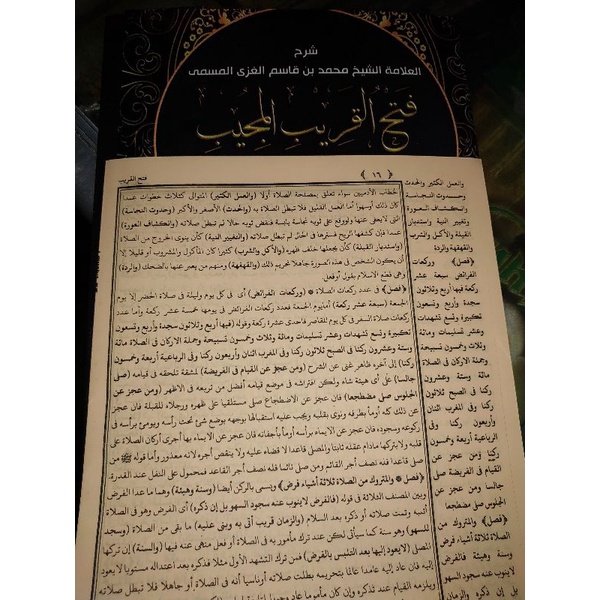 شرح
العلامة الشيخ محمد بن قاسم الغزى المسمى
فتح القريب المجيب
فتح القريب
﴿ ١٦ ﴾
خطاب الآدميين سواء تعلق بمصلحة الصلاة أولا (والعمل الكثير) المتوالى كثلاث خطوات عمدا
كان ذلك أوسهوا أما العمل القليل فلا تبطل الصلاة به (والحدث) الأصغر والأكبر (وحدوث النجاسة)
التى لايعفى عنها ولووقع على ثوبه نجاسة يابسة فنفض ثوبه حالا لم تبطل صلاته (وانكشاف العورة)
عمدا فإن كشفها الريح فسترها فى الحال لم تبطل صلاته (والتغيير النية) كأن ينوى الخروج من الصلاة
(واستدبار القبلة) كأن يجعلها خلف ظهره (والأكل والشرب) كثيرا كان المأكول والمشروب أو قليلا إلا
أن يكون الشخص فى هذه الصورة جاهلا تحريم ذلك (والقهقهة) ومنهم من يعبر عنها بالضحك (والردة)
وهى قطع الاسلام بقول أوفعل.
﴿فصل﴾ فى عدد ركعات الصلاة * (وركعات الفرائض) أى فى كل يوم وليلة فى صلاة الحضر إلا يوم
الجمعة (سبعة عشر ركعة) أمايوم الجمعة فعدد ركعات الفرائض فى يومها خمسة عشر ركعة وأما عدد
ركعات صلاة السفر فى كل يوم للقاصر فاحدى عشرة ركعة وقوله (فيها أربع وثلاثون سجدة وأربع وتسعون
تكبيرة وتسع تشهدات وعشر تسليمات ومائة وثلاث وخمسون تسبيحة وجملة الأركان فى الصلاة مائة
وستة وعشرون ركنا فى الصبح ثلاثون ركنا وفى المغرب اثنان وأربعون ركنا وفى الرباعية أربعة وخمسون
ركنا) إلى آخره ظاهر غنى عن الشرح (ومن عجز عن القيام فى الفريضة) لمشقة تلحقه فى قيامه (صلى
جالسا) على أى هيئة شاء ولكن افتراشه فى موضع قيامه أفضل من تربعه فى الأظهر (ومن عجز عن
الجلوس صلى مضطجعا) فإن عجز عن الاضطجاع صلى مستلقيا على ظهره ورجلاه للقبلة فان عجز
عن ذلك كله أومأ بطرفه ونوى بقلبه ويجب عليه استقبالها بوجهه بوضع شئ تحت رأسه ويومئ برأسه فى
ركوعه وسجوده فان عجز عن الايماء برأسه أومأ بأجفانه فان عجز عن الايماء بها أجرى أركان الصلاة على
قلبه ولايتركها مادام عقله ثابتا والمصلى قاعدا لا قضاء عليه ولا ينقص أجره لانه معذور وأما قوله ﷺ من
صلى قاعدا فله نصف أجر القائم ومن صلى نائما فله نصف أجر القاعد فمحمول على النفل عند القدرة.
﴿فصل﴾ * (والمتروك من الصلاة ثلاثة أشياء فرض) ويسمى بالركن أيضا (وسنة وهيئة) وهما ما عدا الفرض
وبين المصنف الثلاثة فى قوله (فالفرض لاينوب عنه سجود السهو بل إن ذكره) أى الفرض وهو فى الصلاة
أتى به وتمت صلاته أو ذكره بعد السلام (والزمان قريب أتى به وبنى عليه) ما بقى من الصلاة (وسجد
للسهو) وهو سنة كما سيأتى لكن عند ترك مأمور به فى الصلاة أو فعل منهى عنه فيها (والسنة) إن تركها
المصلى (لايعود إليها بعد التلبس بالفرض) فمن ترك التشهد الأول مثلا فذكره بعد اعتداله مستويا لايعود
إليه فان عاد إليه عامدا عالما بتحريمه بطلت صلاته أوناسيا أنه فى الصلاة أو جاهلا فلا تبطل صلاته
ويلزمه القيام عند تذكره وإن كان مأموما عاد وجوبا
والعمل الكثير والحدث
وحدوث النجاسة
وانكشاف العورة
وتغيير النية واستدبار
القبلة والأكل والشرب
والقهقهة والردة
﴿فصل﴾ وركعات
الفرائض سبعة عشر
ركعة فيها أربع وثلاثون
سجدة وأربع وتسعون
تكبيرة وتسع تشهدات
وعشر تسليمات ومائة
وثلاث وخمسون تسبيحة
وجملة الاركان فى الصلاة
مائة وستة وعشرون
ركنا فى الصبح ثلاثون
ركنا وفى المغرب اثنان
وأربعون ركنا وفى
الرباعية أربعة وخمسون
ركنا ومن عجز عن
القيام فى الفريضة صلى
جالسا ومن عجز عن
الجلوس صلى مضطجعا
﴿فصل﴾ والمتروك من
الصلاة ثلاثة أشياء فرض
وسنة وهيئة فالفرض
لاينوب عنه سجود السهو
بل إن ذكره والزمان